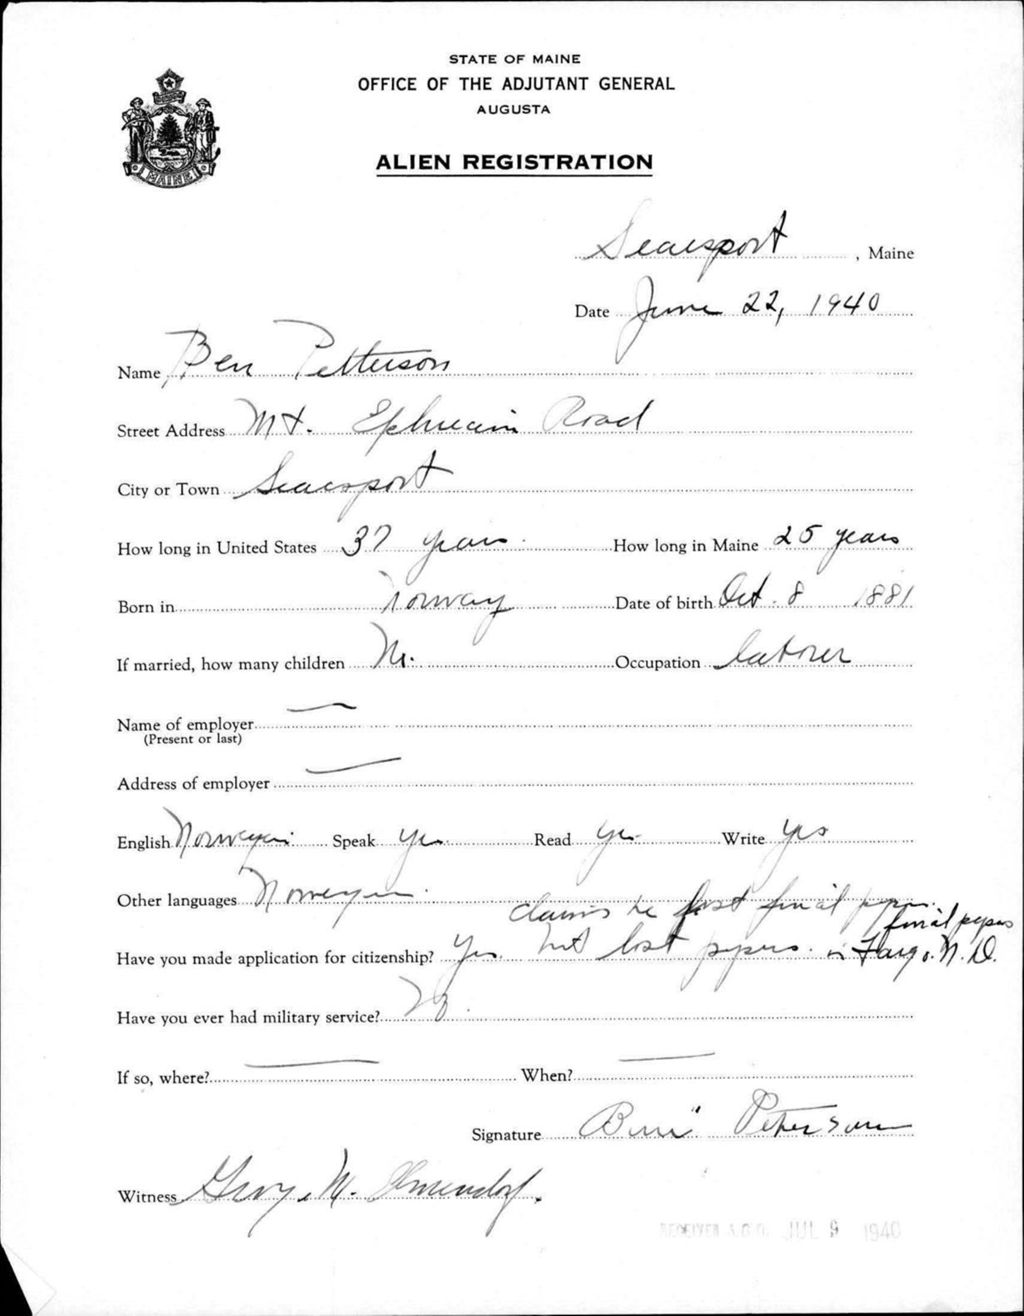 STATE OF MAINE
OFFICE OF THE ADJUTANT GENERAL
AUGUSTA
MAINE
ALIEN REGISTRATION
Searsport, Maine
Date June 22, 1940
Name Ben Petterson
Street Address Mt. Ephraim Road
City or Town Searsport
How long in United States 37 years. How long in Maine 25 years
Born in Norway Date of birth Oct. 8 1881
If married, how many children Occupation laborer
Name of employer —
(Present or last)
Address of employer —
English Norwegian Speak yes Read yes Write yes
Other languages Norwegian. claims he lost final papers.
final papers
Have you made application for citizenship? Yes. but lost papers. in Fargo. N. D.
Have you ever had military service? No.
If so, where? — When? —
Signature Peterson
Witness M.
RECEIVED A.G.O. JUL 9 1940